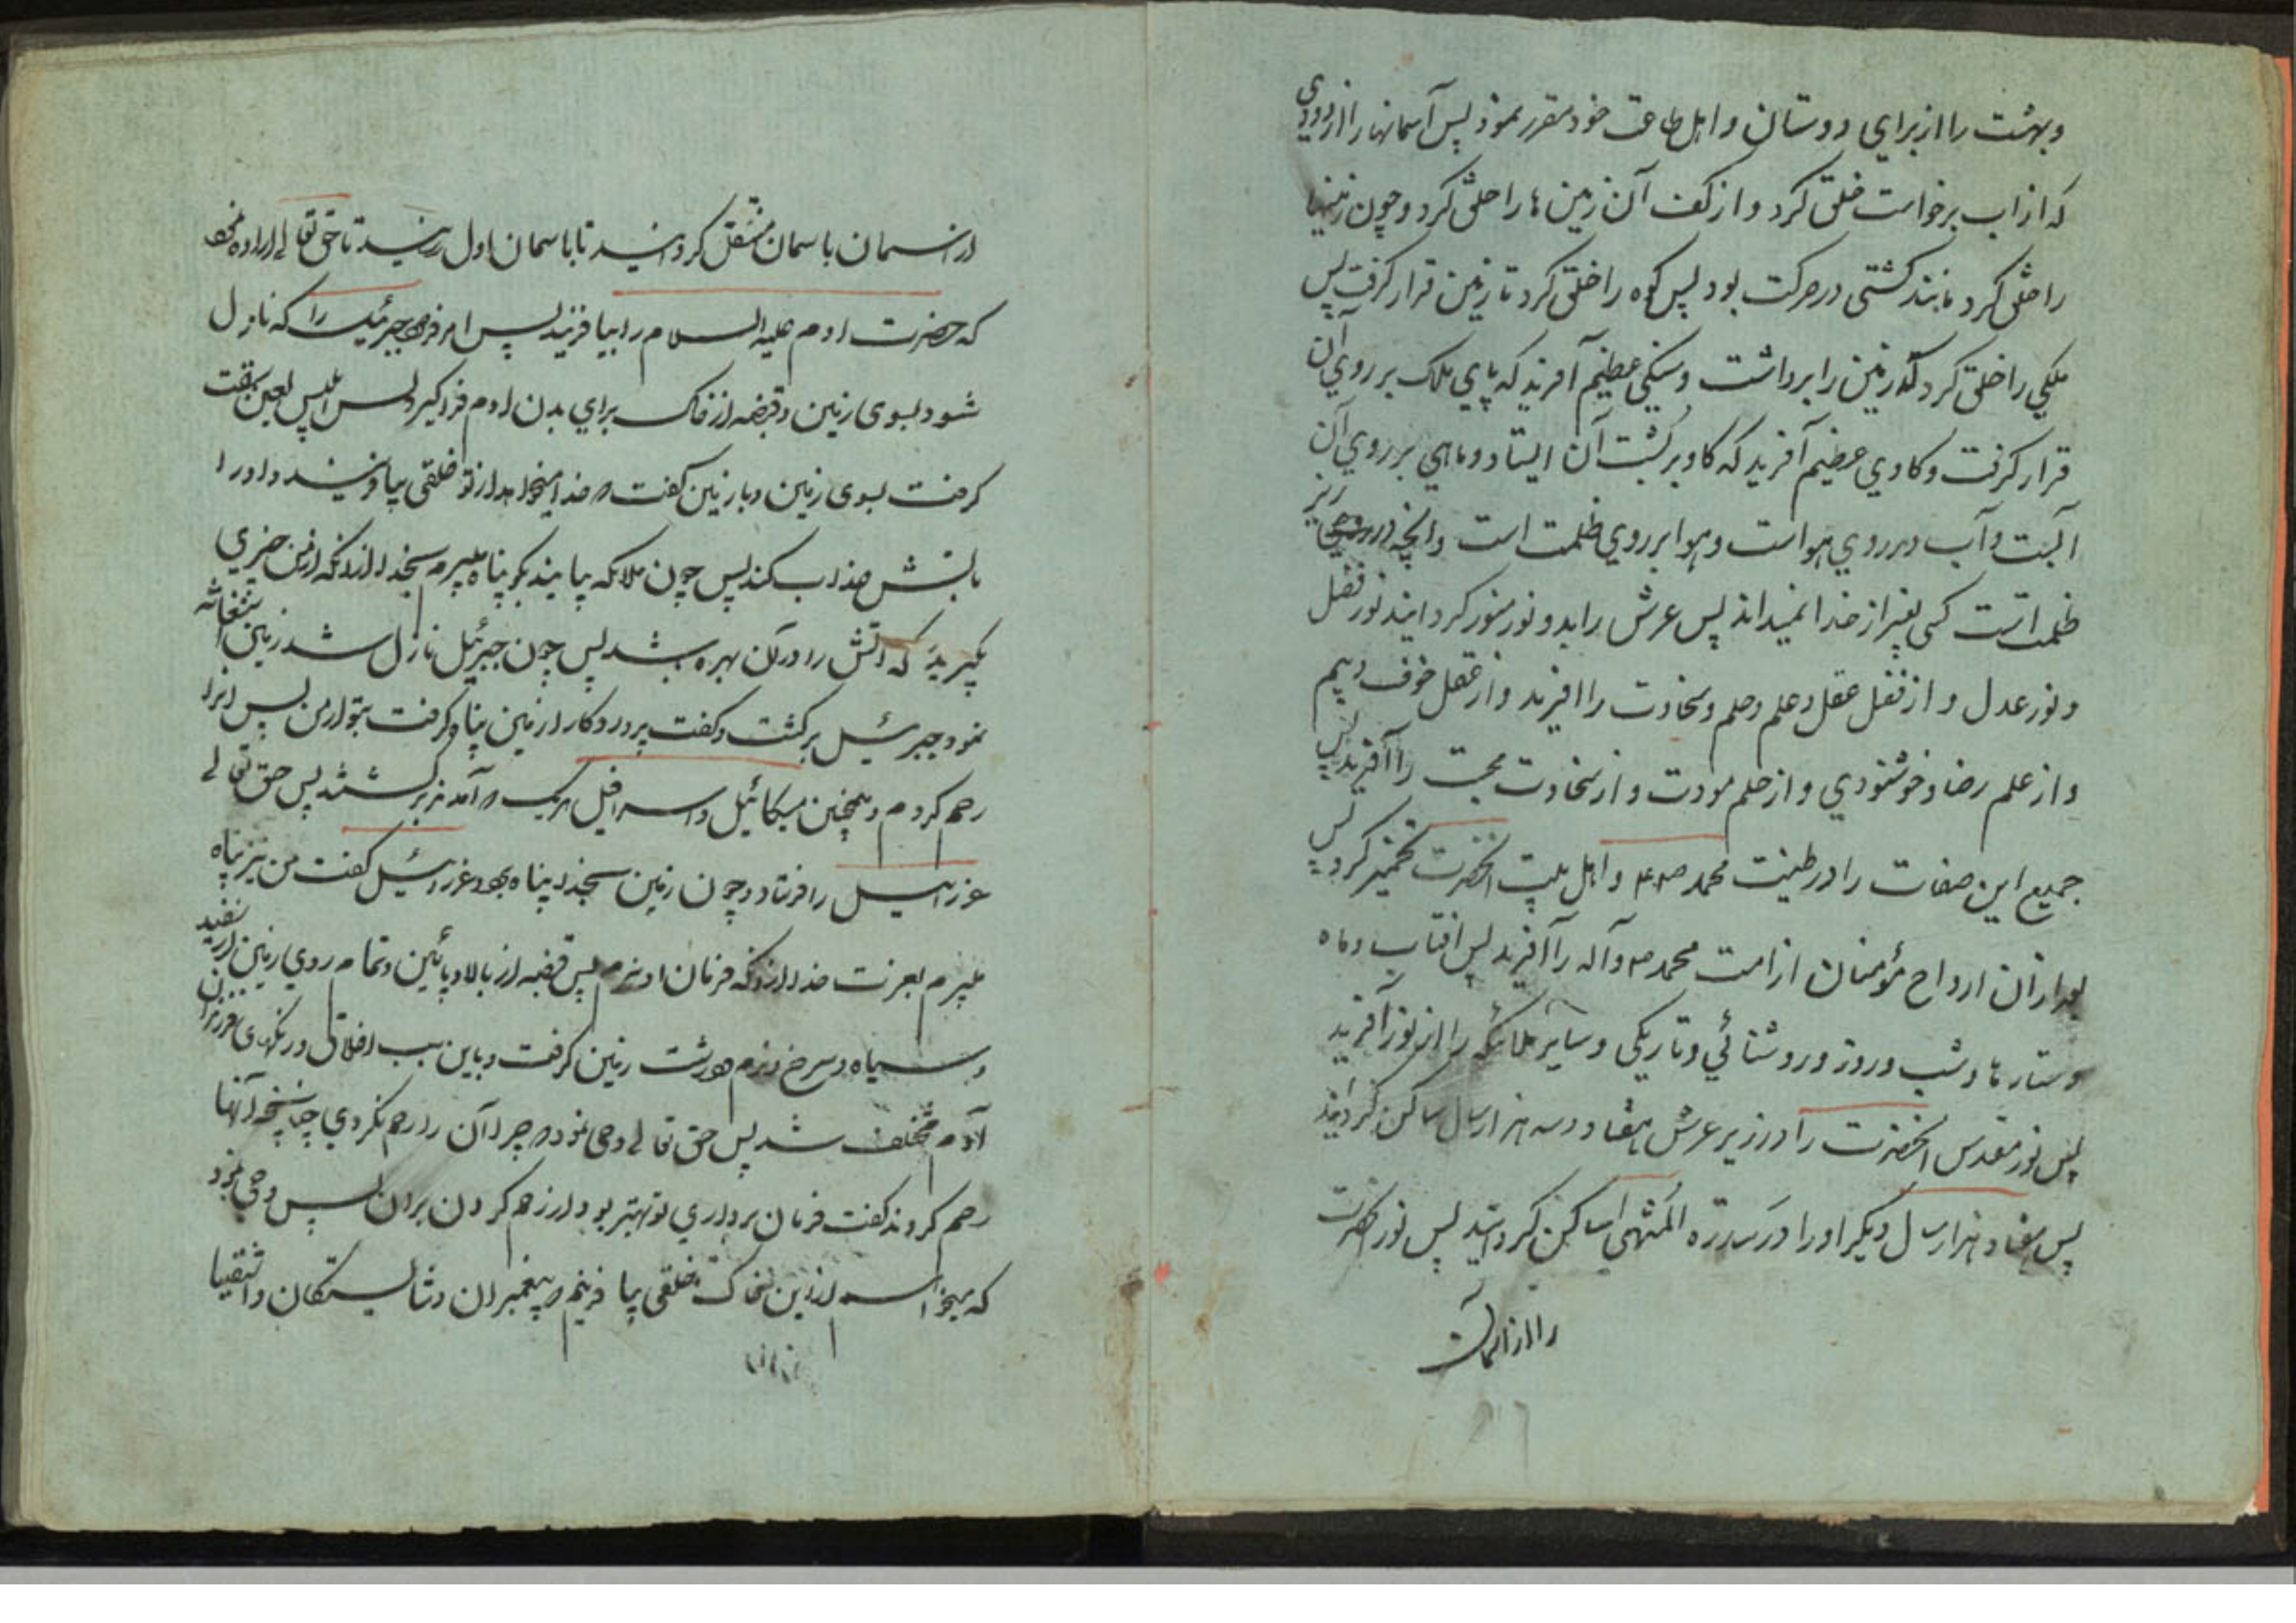 وبهشت را از برای دوستان و اهل طاعت خود مقرر نمود پس آسمانها را از دودی
که از اب برخواست خلق کرد و از کف آن زمین ها را خلق کرد و چون زمینها
را خلق کرد مانند کشتی در حرکت بود پس کوه را خلق کرد تا زمین قرار کرفت پس
ملکی را خلق کرد که زمین را برداشت و سنکی عظیم آفرید که پای ملک بر روی آن
قرار کرفت و کاوی عظیم آفرید که کاو بر پشت آن ایستاد و ماهی بر روی آن
آبست و آب بر روی هواست و هوا بر روی ظلمت است و انچه در زیر
ظلمت است کسی بغیر از خدا نمیداند پس عرش را بدو نور منور کردانید نور فضل
و نور عدل و از فضل عقل و علم و حلم و سخاوت را افرید و از عقل خوف و بیم
و از علم رضا و خوشنودی و از حلم مودت و از سخاوت محبت را آفرید پس
جمیع این صفات را در طینت محمد ص و اهل بیت انحضرت تخمیر کرد پس
بعد از ان ارواح مؤمنان از امت محمد ص و آله را آفرید پس افتاب و ماه
و ستارها و شب و روز و روشنائی و تاریکی و سایر ملائکه را از نور آفرید
پس نور مقدس انحضرت را در زیر عرش هفتاد و سه هزار سال ساکن کردانید
پس هفتاد هزار سال دیکر او را در سدرة المنتهی ساکن کردانید پس نور انحضرت
را از آسمان
از اسمان باسمان منتقل کردانید تا باسمان اول رسانید تا حق تعالے اراده نمود
که حضرت ادم علیه السلام را بیافریند پس امر فرمود جبرئیل را که نازل
شود بسوی زمین و قبضه از خاک برای بدن ادم فرا کیرد پس ابلیس لعین سبقت
کرفت بسوی زمین و با زمین کفت که خدا میخواهد از تو خلقی بیافریند و او را
باتش عذاب کند پس چون ملائکه بیایند بکو پناه میبرم بخدا از انکه از من چیزی
بکیرید که اتش را در آن بهره باشد پس چون جبرئیل نازل شد زمین استغاثه
نمود جبرئیل برکشت و کفت پروردکارا زمین پناه کرفت بتو از من پس او را
رحم کردم و همچنین میکائیل و اسرافیل هریک که آمدند برکشتند پس حق تعالے
عزرائیل را فرستاد و چون زمین بخدا پناه برد عزرائیل کفت من نیز پناه
میبرم بعزت خدا از انکه فرمان او نبرم پس قبضه از بالا و پائین و تمام روی زمین از سفید
و سیاه و سرخ و نرم و درشت زمین کرفت و باین سبب اخلاق و رنکهای فرزندان
آدم مختلف شد پس حق تعالے وحی نمود که چرا آن را رحم نکردی چنانچه آنها
رحم کردند کفت فرمان برداری تو بهتر بود از رحم کردن بران پس وحی نمود
که میخواهم از این خاک خلقی بیافرینم که پیغمبران و شایستکان و اشقیا